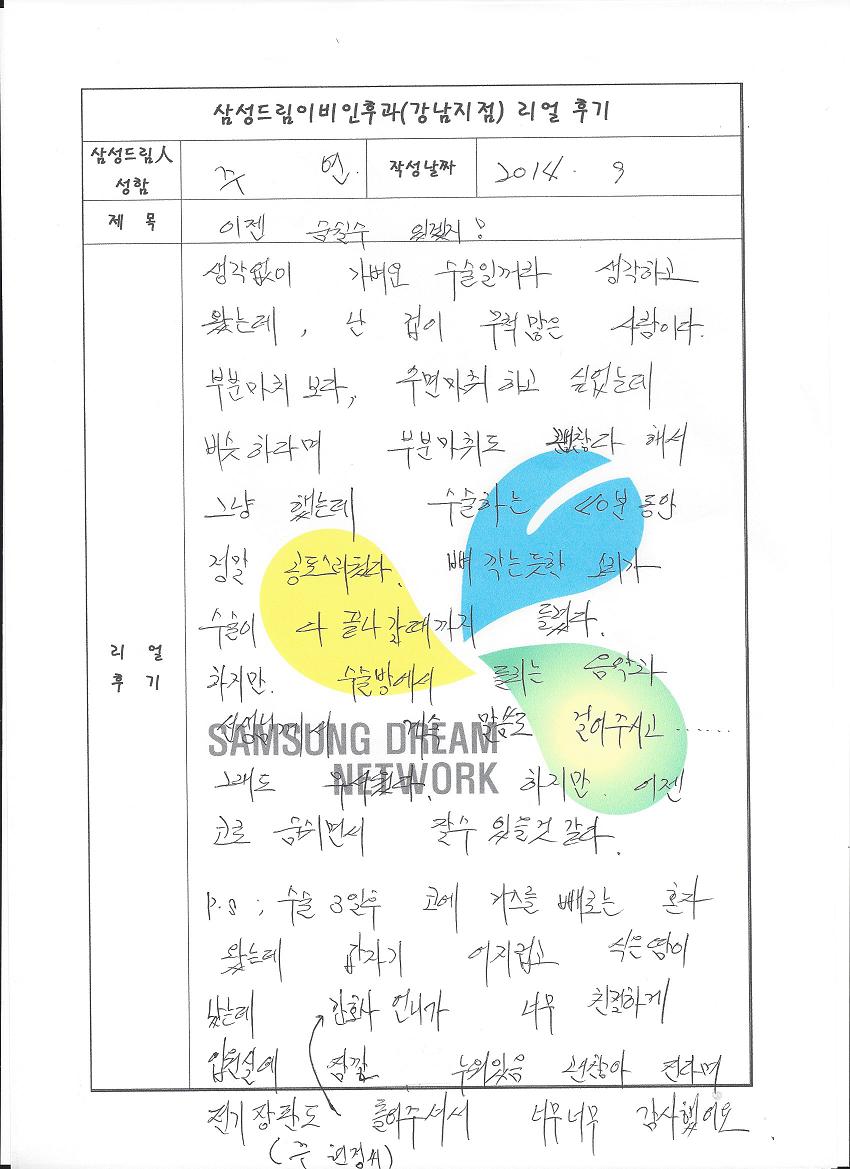 삼성드림이비인후과(강남지점) 리얼 후기
삼성드림人
성함
주 연.
작성날짜
2014. 9
제 목
이젠 숨쉴수 있겠지!
리 얼
후 기
생각없이 가벼운 수술일꺼라 생각하고
왔는데, 난 겁이 무척 많은 사람이다.
부분마취 보다, 수면마취 하고 싶었는데
비슷하라며 부분마취도 괜찮다 해서
그냥 했는데 수술하는 20분 동안
정말 공포스러웠다. 뼈 깍는듯한 소리가
수술이 다 끝나갈때까지 들렸다.
하지만. 수술방에서 틀리는 음악과
선생님께서 계속 말씀도 걸어주시고......
SAMSUNG DREAM
NETWORK
그래도 무서웠다. 하지만. 이젠
코로 숨쉬면서 잘수 있을것 같다.
P.S ; 수술 3일후 코에 거즈를 빼로는 혼자
왔는데 갑자기 어지럽고 식은땀이
났는데 간호사 언니가 너무 친절하게
입원실에 잠깐 누워있음 괜찮아 진다며
전기장판도 틀어주셔서 너무너무 감사했어요.
(주 현정씨)